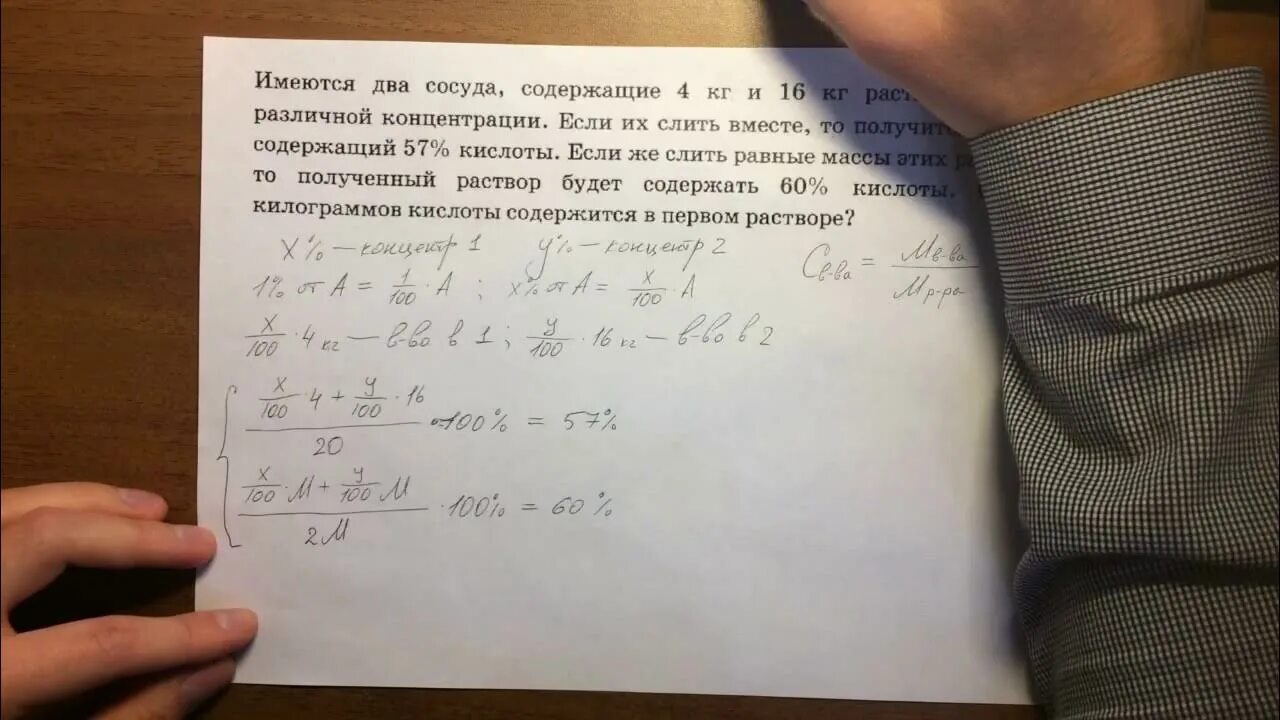 Имеются два сосуда, содержащие 4 кг и 16 кг
различной концентрации. Если их слить вместе, то
содержащий 57% кислоты. Если же слить равные массы этих
то полученный раствор будет содержать 60% кислоты.
килограммов кислоты содержится в первом растворе?
X% — концентр 1 y% — концентр 2
C в-ва = M в-ва / M р-ра
1% от A = 1/100 · A ; x% от A = x/100 · A
x/100 · 4 кг — в-во в 1 ; y/100 · 16 кг — в-во в 2
(x/100 · 4 + y/100 · 16) / 20 · 100% = 57%
(x/100 · M + y/100 M) / 2M · 100% = 60%